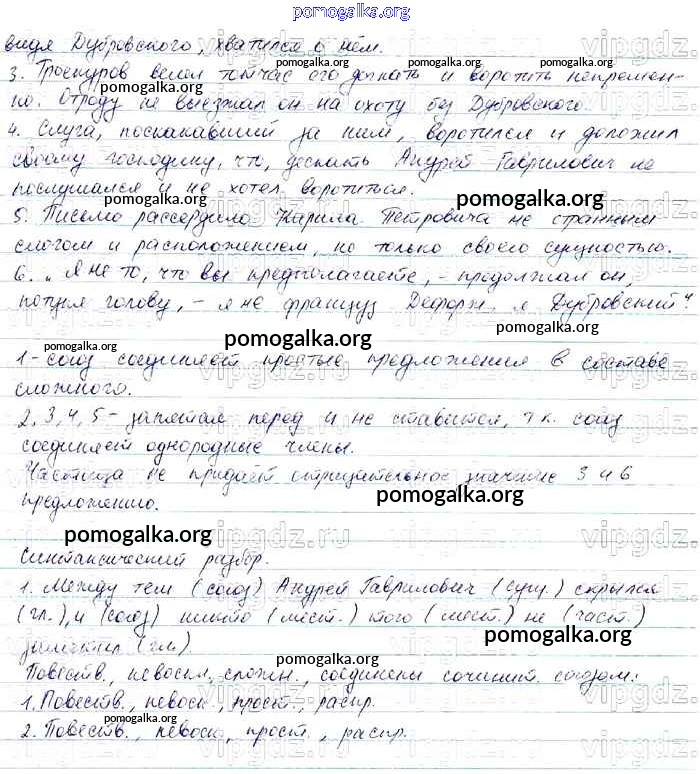 pomogalka.org
видя Дубровского, хватился о нём.
3. Троекуров велел тотчас его догнать и воротить непремен-
но. Отроду не выезжал он на охоту без Дубровского.
4. Слуга, поскакавший за ним, воротился и доложил
своему господину, что, дескать Андрей Гаврилович не
послушался и не хотел воротиться.
pomogalka.org
5. Письмо рассердило Кирила Петровича не странным
слогом и расположением, но только своею сущностью.
6. "Я не то, что вы предполагаете, - продолжал он,
потупя голову, - я не француз Дефорж, я Дубровский".
pomogalka.org
1 - союз соединяет простые предложения в составе
сложного.
2, 3, 4, 5 - запятая перед и не ставится, т.к. союз
соединяет однородные члены.
Частица не придаёт отрицательное значение 3 и 6
предложению.
pomogalka.org
pomogalka.org
Синтаксический разбор.
1. Между тем (союз) Андрей Гаврилович (сущ.) скрылся
(гл.), и (союз) никто (мест.) того (мест.) не (част.)
заметил (гл.)
pomogalka.org
pomogalka.org
Повеств., невоскл., сложн., соединены сочинит. союзом:
1. Повеств., невоск., прост., распр.
pomogalka.org
pomogalka.org
2. Повеств., невоск., прост., распр.